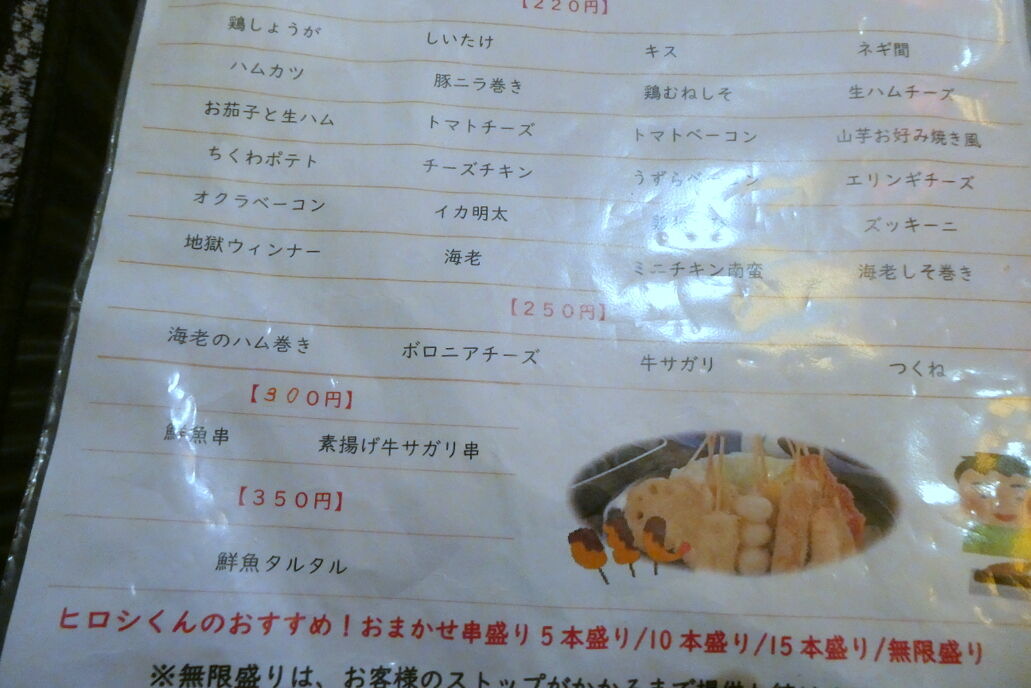 【220円】
鶏しょうが しいたけ キス ネギ間
ハムカツ 豚ニラ巻き 鶏むねしそ 生ハムチーズ
お茄子と生ハム トマトチーズ トマトベーコン 山芋お好み焼き風
ちくわポテト チーズチキン うずらベーコン エリンギチーズ
オクラベーコン イカ明太 ズッキーニ
地獄ウィンナー 海老 ミニチキン南蛮 海老しそ巻き
【250円】
海老のハム巻き ボロニアチーズ 牛サガリ つくね
【300円】
鮮魚串 素揚げ牛サガリ串
【350円】
鮮魚タルタル
ヒロシくんのおすすめ！おまかせ串盛り5本盛り/10本盛り/15本盛り/無限盛り
※無限盛りは、お客様のストップがかかるまで提供し